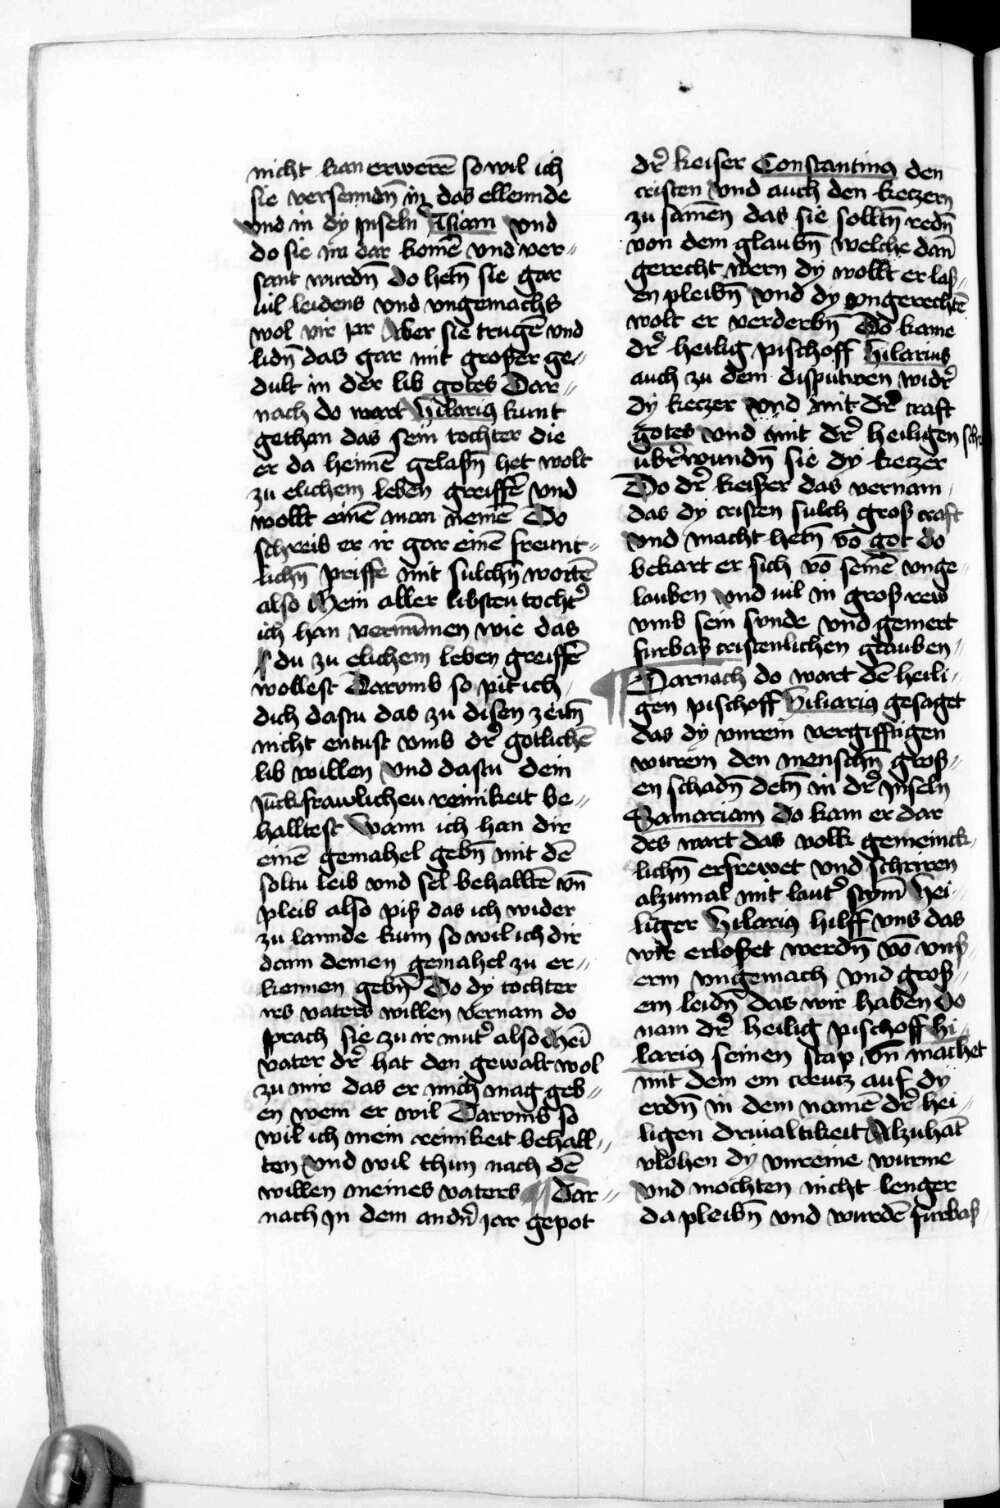 nicht kan erwerē so wil ich
sie versenndn̄ in das ellennde
vnd in dy jnseln Asiam vnd
do sie nu dar komē vnd ver⸗
sant wurdn̄ do hetn̄ sie gar
uil leidens vnd vngemachs
wol vir jar Aber sie trugē vnd
lidn̄ das gar mit großer ge⸗
dult in der lib gotes Dar⸗
nach do wart Hilariꝯ kunt
gethan das sein tochter die
er da heimē gelasn̄ het wolt
zu elichem leben greiffē vnd
wollt einē man nemē Do
schreib er ir gar einē freunt⸗
lichn̄ priffe mit sulchn̄ wortē
also Mein aller libsten tocht̄
ich han vernūmen wie das
du zu elichem leben greiffē
wollest Darvmb so pit ich
dich dastu das zu disen zeitn̄
nicht entust vmb dr̄ gotlichē
lib willen vnd dastu dein
Jūckfrawlichen reinikeit be⸗
halltest Wann ich han dir
einē gemahel gebn̄ mit dē
soltu leib vnd sel behalltē vn̄
pleib also piß das ich wider
zu lannde kum so wil ich dir
dann deinen gemahel zu er⸗
kennen gebn̄ Do dy tochter
irs vaters willen vernam do
sprach sie zu ir mut̄ also Mei
vater dr̄ hat den gewalt wol
zu mir das er mich mag geb⸗
en wem er wil Darvmb so
wil ich mein reinikeit behall⸗
ten vnd wil thun nach dē
willen meines vaters ¶ Dar⸗
nach Jn dem andn̄ jar gepot
dr̄ keiser Constantinꝯ den
cristen vnd auch den keczern
zu samē das sie solltn̄ redn̄
von dem glaubn̄ welche dan̄
gerecht wern dy wollt er las⸗
en pleibn̄ vnd dy vngerechtē
wolt er verderbn̄ Do kame
dr̄ heilig pischoff Hilarius
auch zu dem disputiren widr̄
dy keczer vnd mit dr̄ craft
gotes vnd mit dr̄ heiligen schr
ubr̄wundn̄ sie dy keczer
Do dr̄ keiser das vernam
das dy cristen sulch groß craft
vnd macht hetn̄ vō got do
bekart er sich vō seinē vnge⸗
lauben vnd uil in groß rew
vmb sein sunde vnd gemert
furbaß cristenlichen glauben
¶ Darnach do wart dē heili⸗
gen pischoff Hiliariꝯ gesaget
das dy vnrein vergifftigen
wurem den menschn̄ groß⸗
en schadn̄ detn̄ in dr̄ Jnseln
Samariam do kam er dar
des wart das volk gemeinck⸗
lichn̄ erfrewet vnd schriren
alzumal mit laut̄ stym̄ Hei⸗
liger Hilariꝯ hilff vns das
wir erloßet werdn̄ vō vnß⸗
erm vngemach vnd groß⸗
em leidn̄ das wir haben Do
nam dr̄ heilig pischoff Hi⸗
lariꝯ seinen stap vn̄ machet
mit dem ein creutz auf dy
erdn̄ in dem namē dr̄ hei⸗
ligen driualtikeit Alzuhāt
vlohen dy vnreine wurme
vnd mochten nicht lenger
da pleibn̄ vnd wurdē furbaß